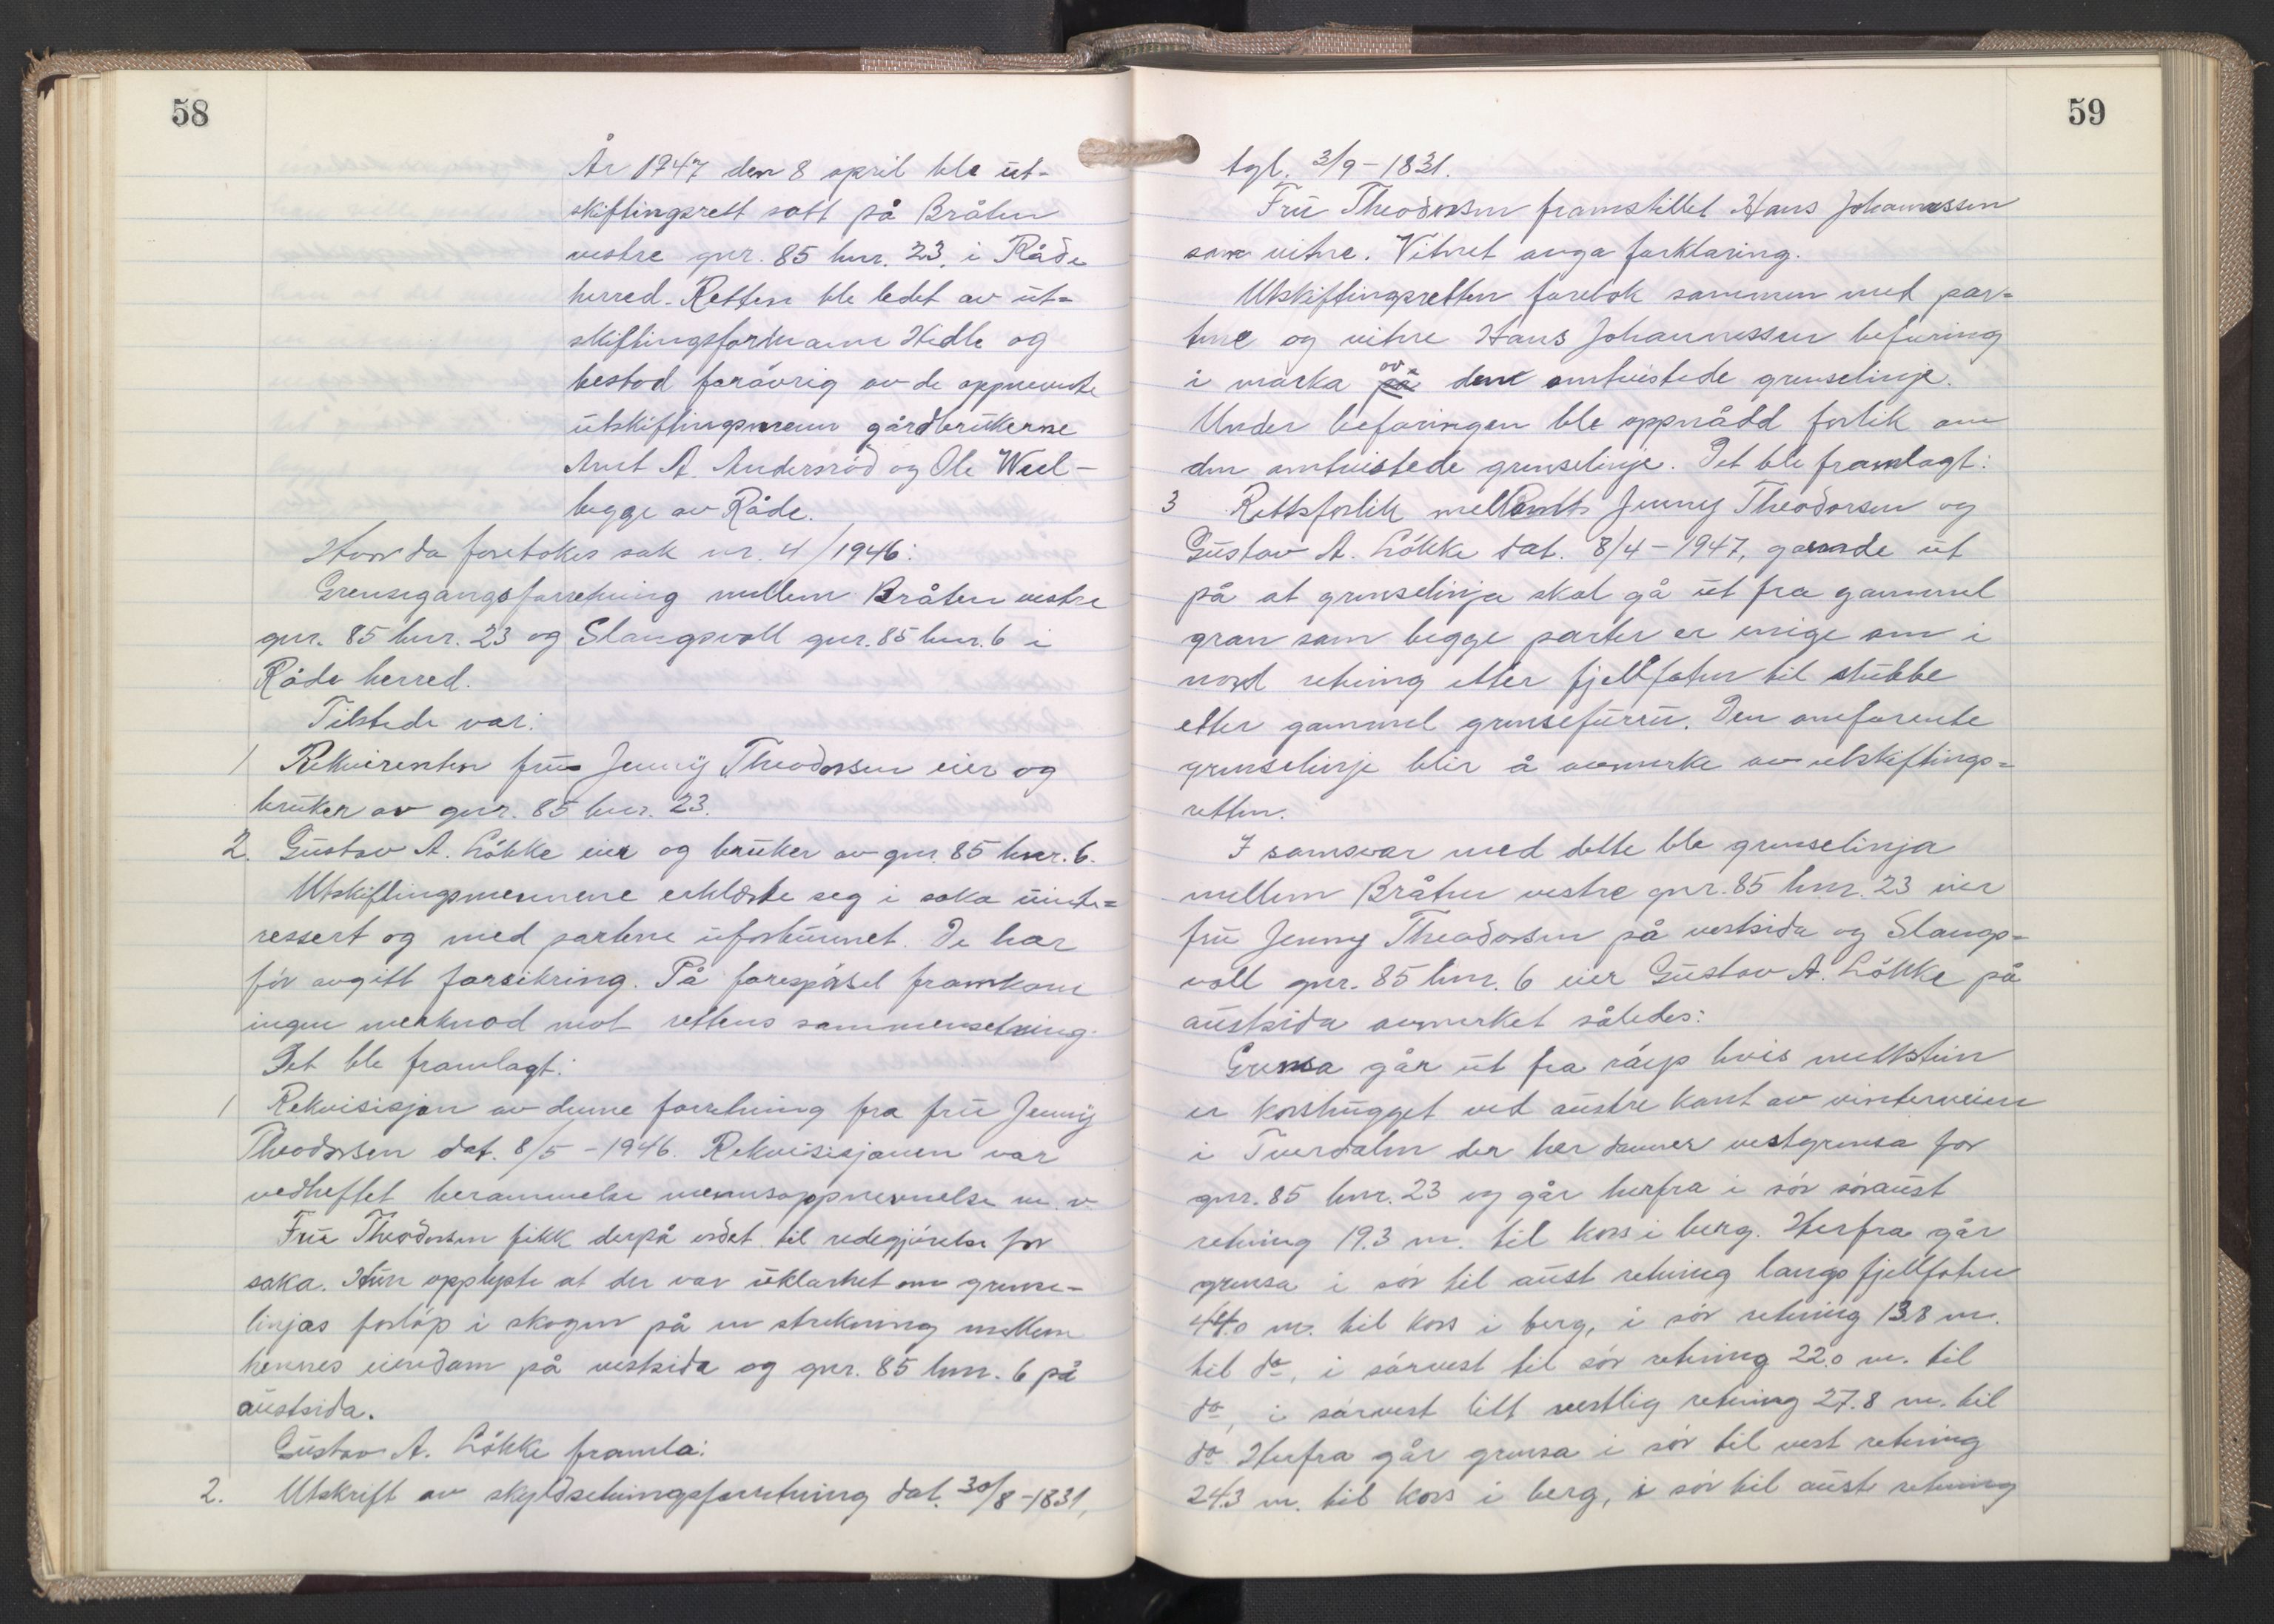 58
År 1947 den 8 april ble ut-
skiftingsrett satt på Bråten
vestre gnr. 85 bnr. 23. i Råde
herred. Retten ble ledet av ut=
skiftingsformann Hidle og
bestod forøvrig av de oppnevnte
utskiftingsmenn gårdbrukerne
Arnt A. Andersrød og Ole Weel-
begge av Råde.
Hvor da foretokes sak nr. 4/1946:
Grensegangsforretning mellem Bråten vestre
gnr. 85 bnr. 23 og Slangsvoll gnr. 85 bnr. 6 i
Råde herred.
Tilstede var:
1 Rekvirenten fru Jenny Theodorsen eier og
bruker av gnr. 85 bnr. 23.
2. Gustav A. Løkke eier og bruker av gnr. 85 bnr. 6.
Utskiftingsmennene erklærte seg i saka uinte=
ressert og med partene uforbunnet. De har
før avgitt forsikring. På forespørsel framkom
ingen merknad mot rettens sammensetning.
Det ble framlagt:
1 Rekvisisjon av denne forretning fra fru Jenny
Theodorsen dat. 8/5 - 1946. Rekvisisjonen var
vedheftet berammelse mennsoppnevnelse m. v.
Fru Theodorsen fikk derpå ordet til redegjørelse for
saka. Hun opplyste at der var uklarhet om grense-
linjas forløp i skogen på en strekning mellem
hennes eiendom på vestsida og gnr. 85 bnr. 6 på
austsida.
Gustav A. Løkke framla:
2. Utskrift av skyldsetningsforretning dat. 30/8 - 1831,
59
tgl. 3/9 - 1831.
Fru Theodorsen framstillet Hans Johannessen
som vitne. Vitnet avga forklaring.
Utskiftingsretten foretok sammen med par=
tene og vitne Hans Johannessen befaring
i marka på av den omtvistede grenselinje.
Under befaringen ble oppnådd forlik om
den omtvistede grenselinje. Det ble framlagt:
3 Rettsforlik mellem Jenny Theodorsen og
Gustav A. Løkke dat. 8/4 - 1947, gående ut
på at grenselinja skal gå ut fra gammel
gran som begge parter er enige om i
nord retning etter fjellfoten til stubbe
etter gammel grensefuru. Den omforente
grenselinje blir å avmerke av utskiftings=
retten.
I samsvar med dette ble grenselinja
mellem Bråten vestre gnr. 85 bnr. 23 eier
fru Jenny Theodorsen på vestsida og Slangs=
voll gnr. 85 bnr. 6 eier Gustav A. Løkke på
austsida avmerket således:
Grensa går ut fra røys hvis mellstein
er korshugget ved austre kant av vinterveien
i Tverdalen der her danner vestgrensa for
gnr. 85 bnr. 23 og går herfra i sør søraust
retning 19.3 m. til kors i berg. Herfra går
grensa i sør til aust retning langs fjellfoten
44.0 m. til kors i berg, i sør retning 13.8 m.
til do, i sørvest til sør retning 22.0 m. til
do, i sørvest litt vestlig retning 27.8 m. til
do. Herfra går grensa i sør til vest retning
24.3 m. til kors i berg, i sør til aust retning